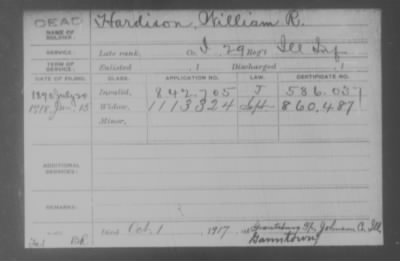 DEAD
NAME OF SOLDIER:
Hardison, William R.
SERVICE: Late rank, Co. I, 29 Reg't Ill Inf
TERM OF SERVICE: Enlisted , 1 Discharged , 1
DATE OF FILING. CLASS. APPLICATION NO. LAW. CERTIFICATE NO.
1890 July Invalid, 842.705 J 586.037
1917 13 Widow, 1113324 Sept. 860.487
Minor,
ADDITIONAL SERVICES:
REMARKS:
Died Oct. 1, 1917, at Grantsburg Ill, Johnson Co, Ill.